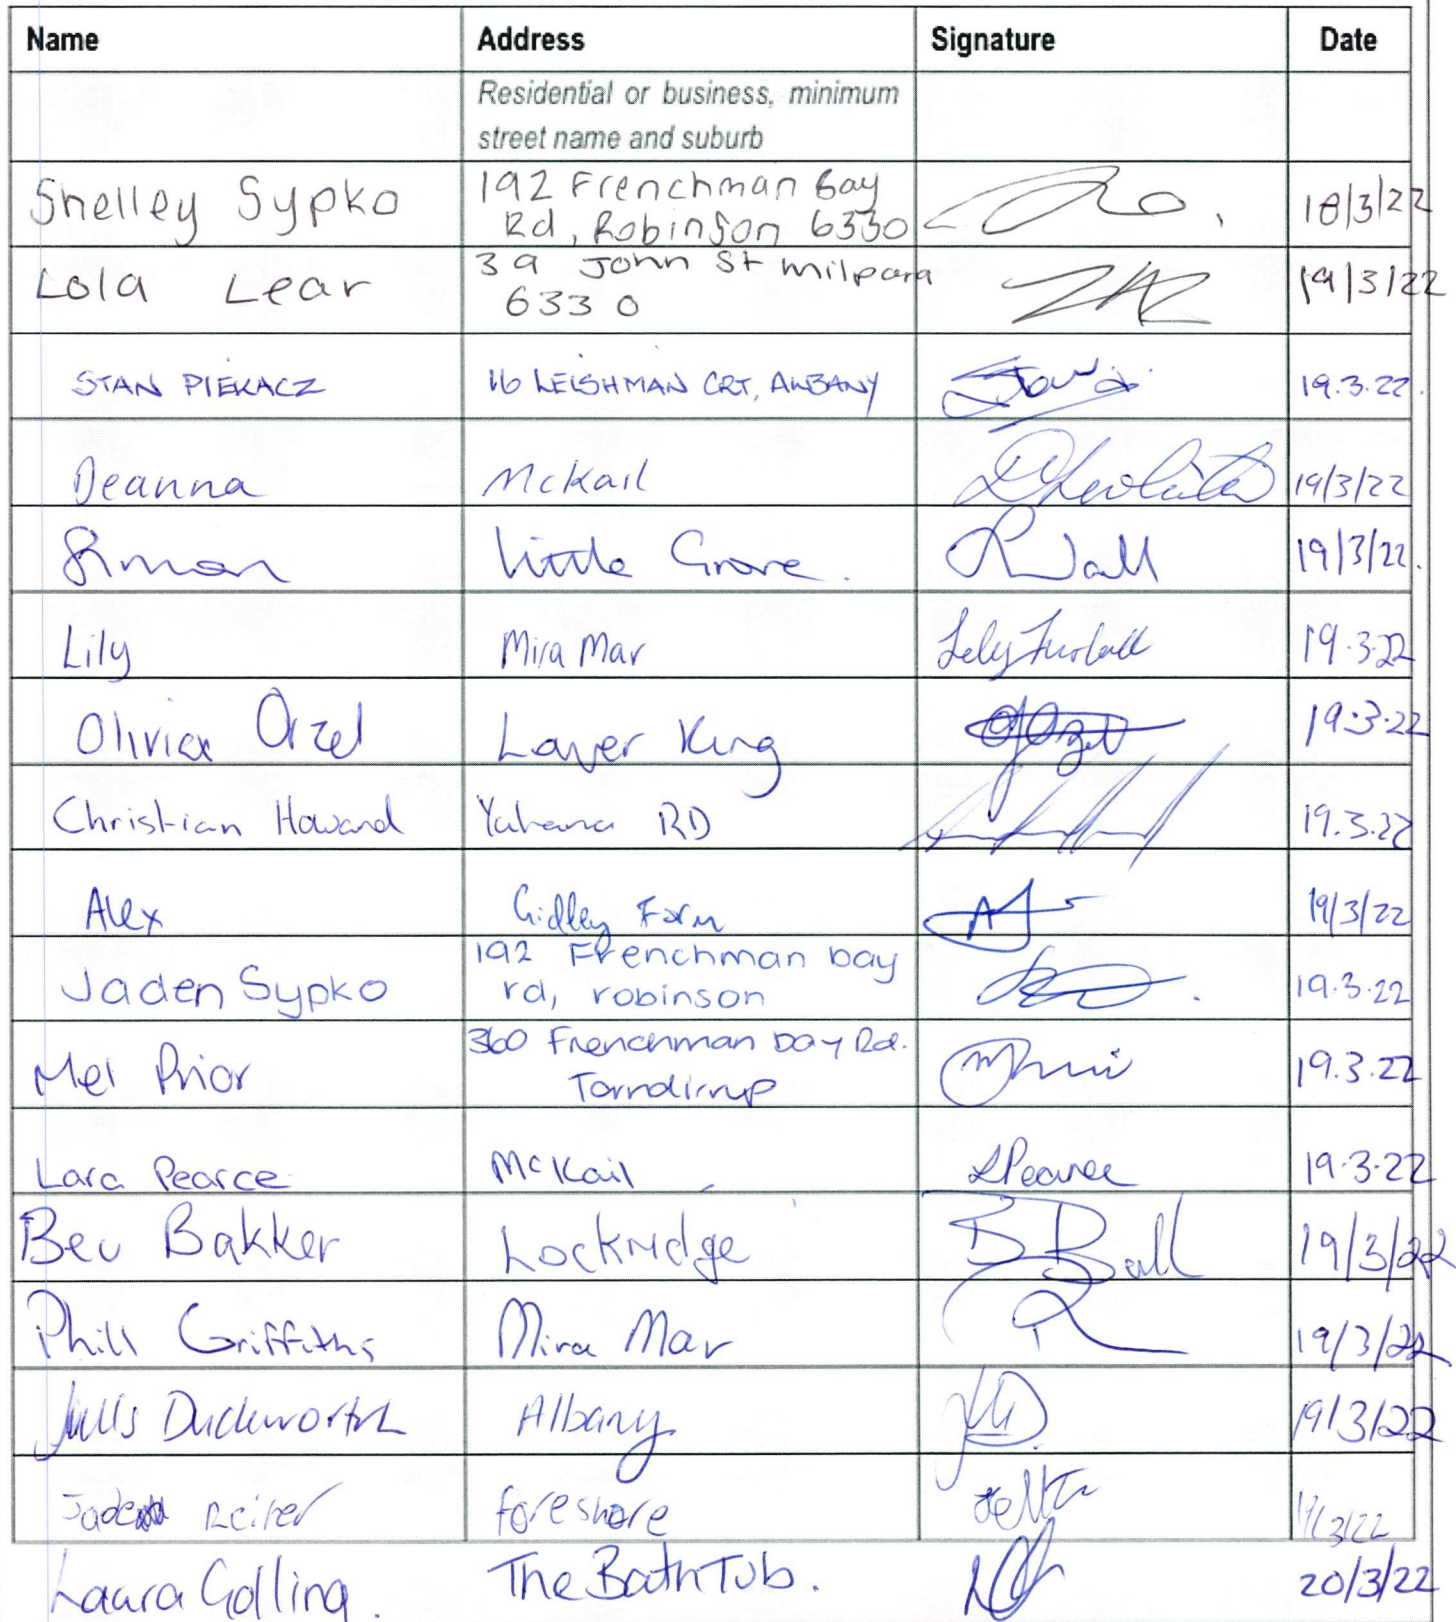 Name Address Signature Date
Residential or business, minimum
street name and suburb
Shelley Sypko 192 Frenchman Bay
Rd, Robinson 6330 18/3/22
Lola Lear 39 John St Milpara
6330 19/3/22
STAN PIEKACZ 16 LEISHMAN CRT, ALBANY 19.3.22.
Deanna McKail 19/3/22
Simon Little Grove. 19/3/22.
Lily Mira Mar 19.3.22
Olivia Orzel Lower King 19.3.22
Christian Howard RD 19.3.22
Alex Gidley Farm 19/3/22
Jaden Sypko 192 Frenchman bay
rd, robinson 19.3.22
Mel Prior 360 Frenchman Bay Rd.
Torndirrup 19.3.22
Lara Pearce McKail LPearce 19.3.22
Bev Bakker Lockridge 19/3/22
Phill Griffiths Mira Mar 19/3/22
Duckworth Albany JD. 19/3/22
Reiter foreshore 19/3/22
Laura Golling. The BathTub. 20/3/22